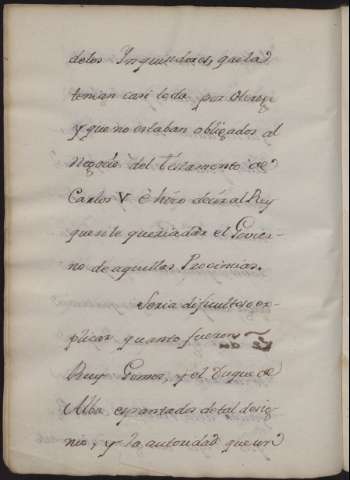 delos Inquisidores, que la
tenian casi toda por
y que no estaban obligados al
Negocio del testamento de
Carlos V. é hizo decir al Rey
que si le queria dar el Govier-
no de aquellas Provincias.
Seria dificultoso ex-
plicar quanto fueron
Ruy Gomez, y el Duque de
Alba espantados de tal desig-
nio, y la autoridad que un